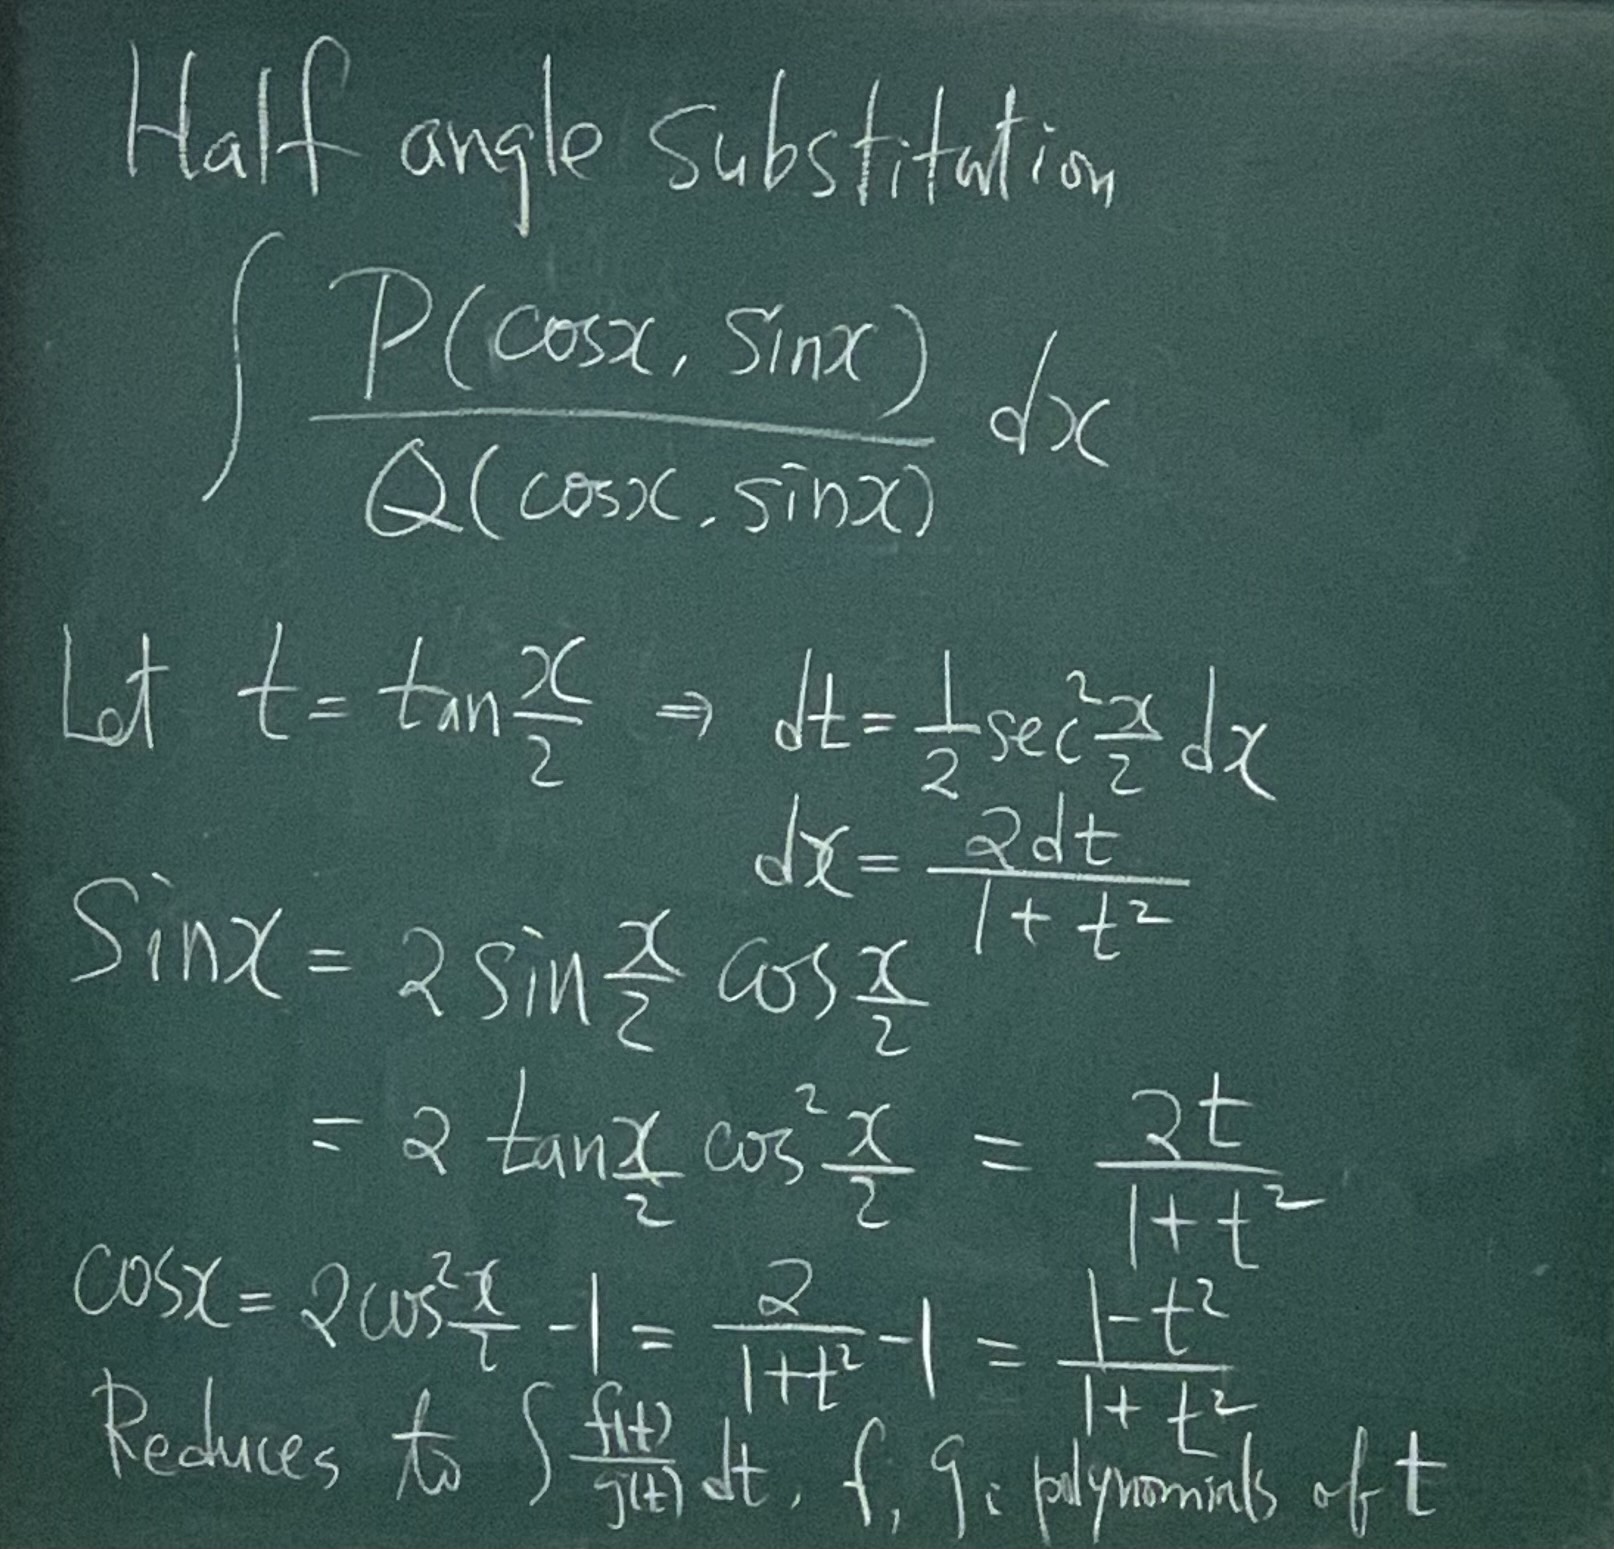 Half angle substitution
∫ P(cosx, sinx) / Q(cosx, sinx) dx
Let t = tan x/2 ⇒ dt = 1/2 sec² x/2 dx
dx = 2dt / 1+t²
Sinx = 2 sin x/2 cos x/2
= 2 tan x/2 cos² x/2 = 2t / 1+t²
cosx = 2cos² x/2 - 1 = 2 / 1+t² - 1 = 1-t² / 1+t²
Reduces to ∫ f(t)/g(t) dt, f, g: polynomials of t